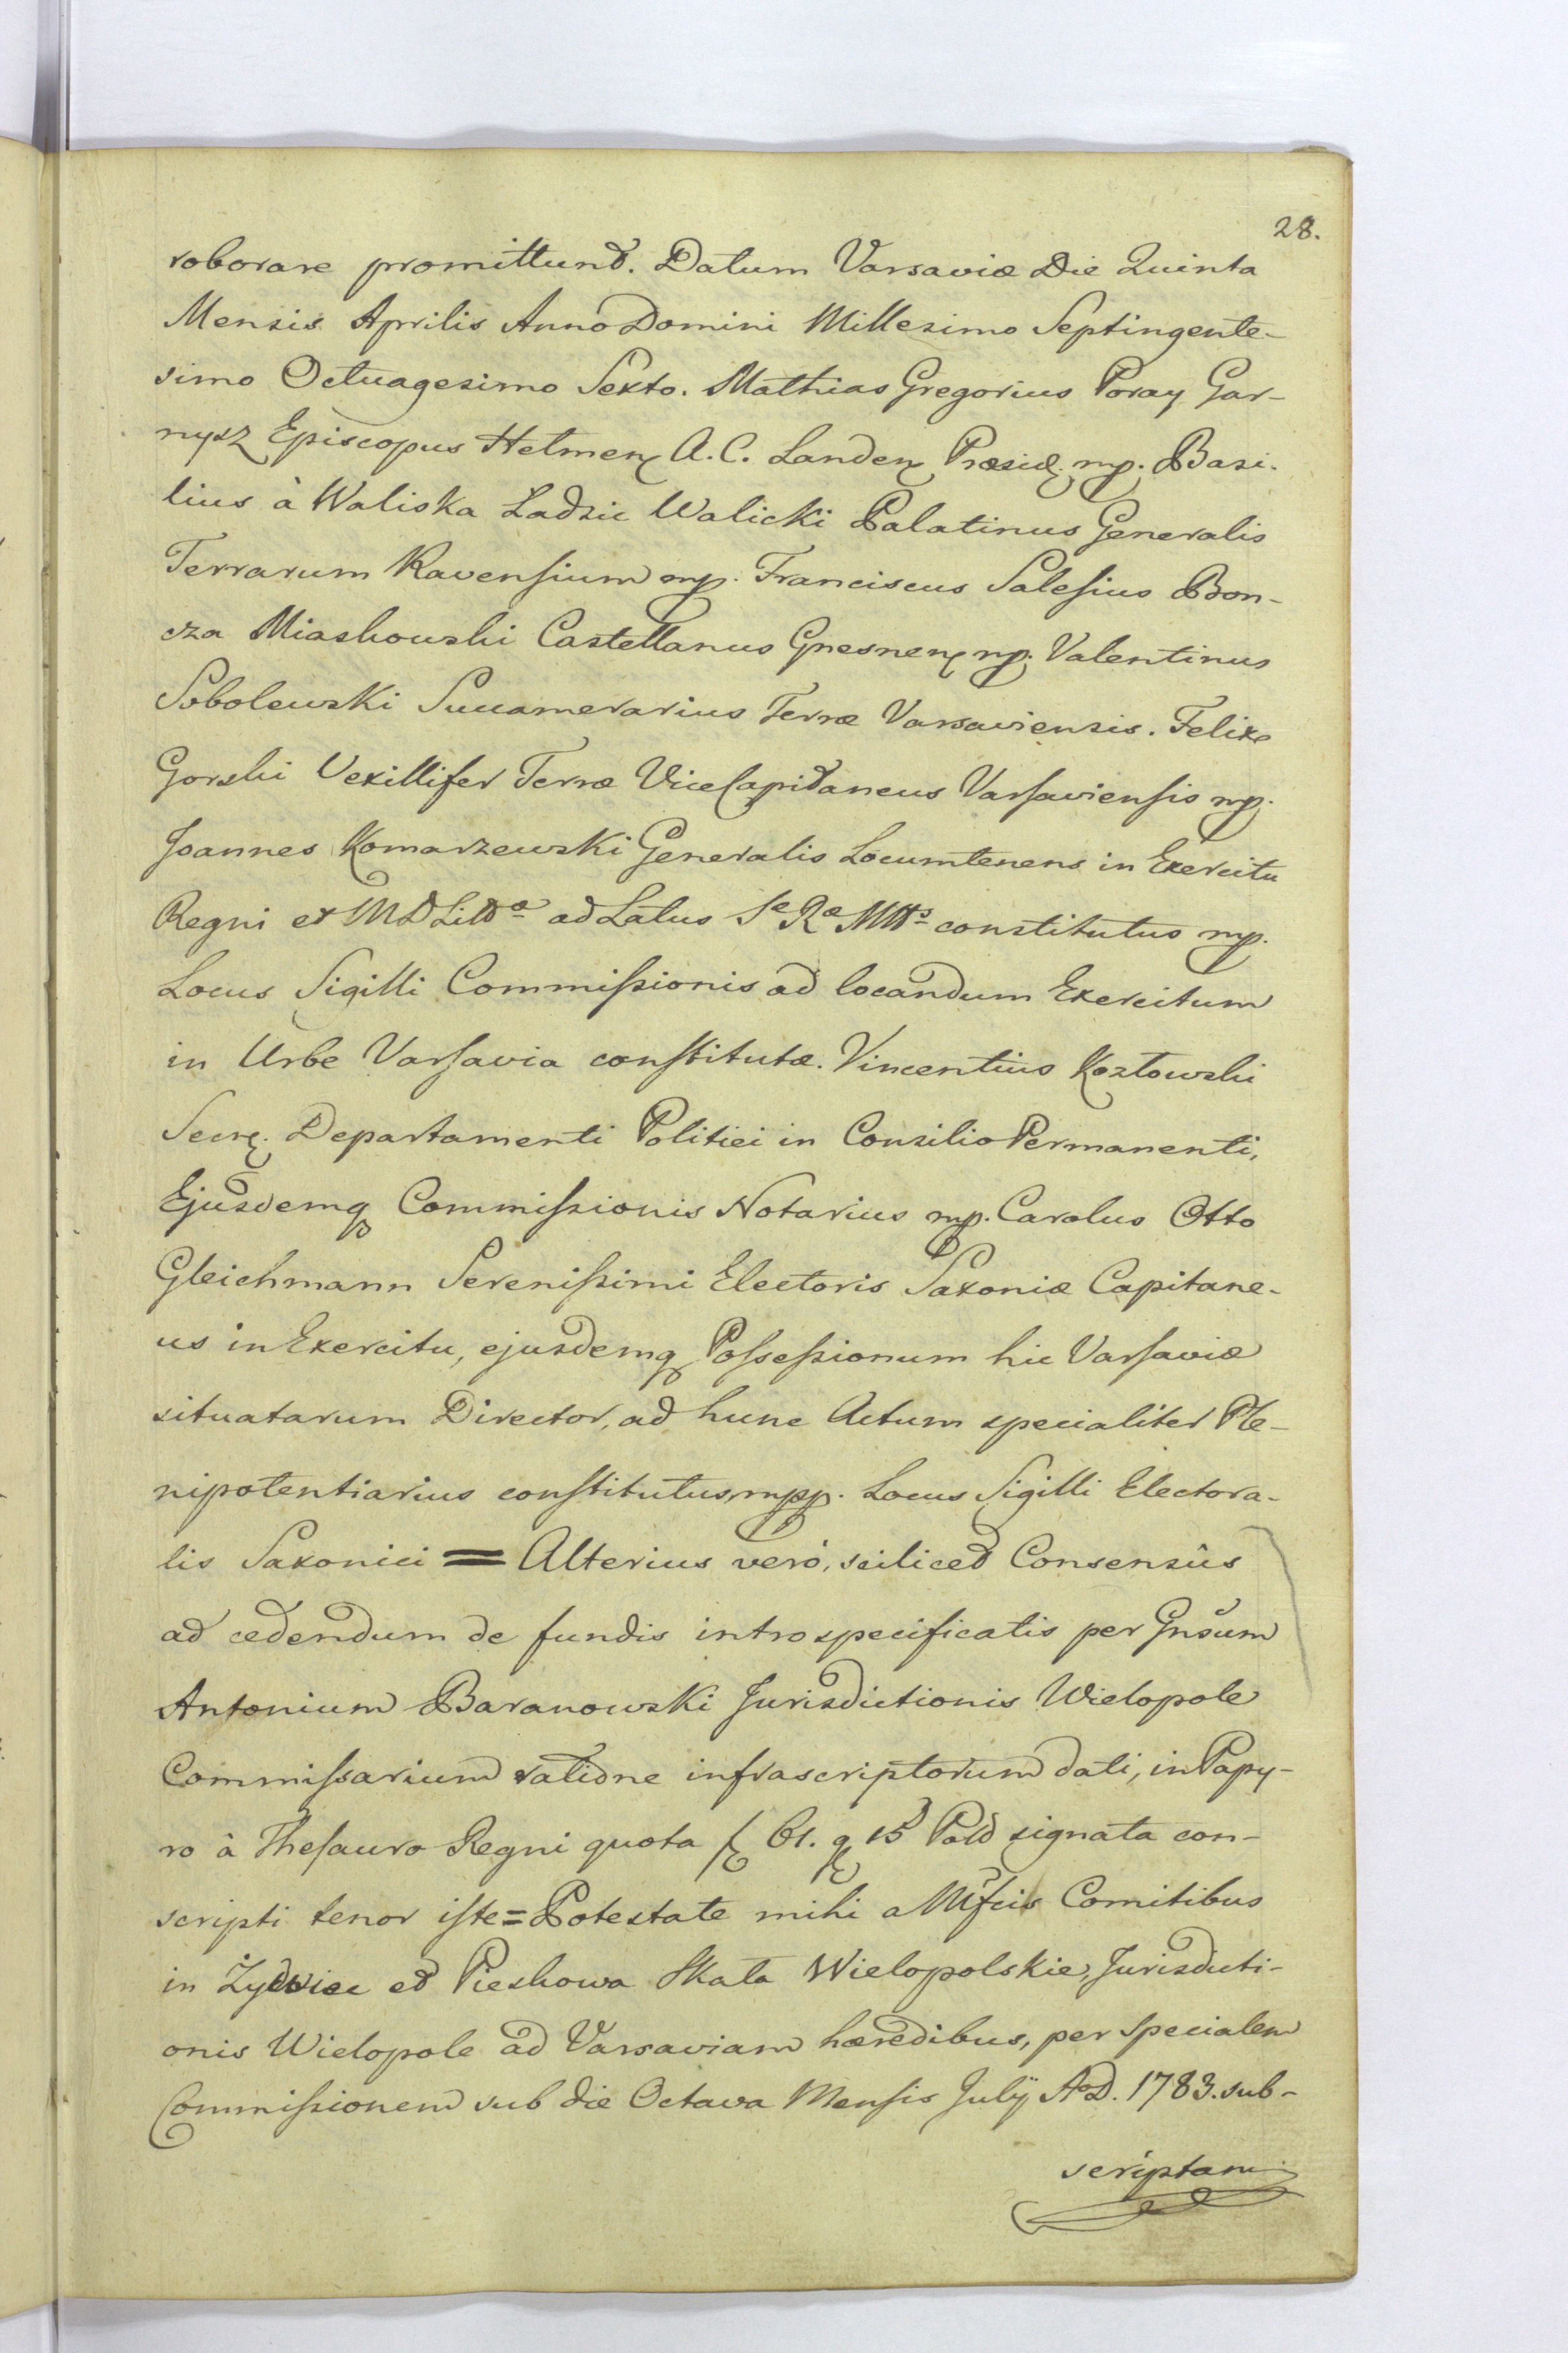 28.
roborare promittunt. Datum Varsaviæ Die Quinta
Mensis Aprilis Anno Domini Millesimo Septingente-
simo Octuagesimo Sexto. Mathias Gregorius Poray Gar-
nysz Episcopus Helmen A.C. Landen Præsid mp. Basi-
lius à Waliska Ladzic Walicki Palatinus Generalis
Terrarum Ravensium mp. Franciscus Salesius Bon-
cza Miaskowski Castellanus Gnesnen mp. Valentinus
Sobolewski Succamerarius Terræ Varsaviensis. Felix
Gorski Vexillifer Terræ Vice Capitaneus Varsaviensis mp.
Joannes Komarzewski Generalis Locumtenens in Exercitu
Regni et MD Littæ ad Latus Sæ Ræ Mttis constitutus mp.
Locus Sigilli Commissionis ad locandum Exercitum
in Urbe Varsavia constitutæ. Vincentius Kozłowski
Secr. Departamenti Politici in Consilio Permanenti,
Ejusdemq Commissionis Notarius mp. Carolus Otto
Gleichmann Serenissimi Electoris Saxoniæ Capitane-
us in Exercitu, ejusdemq Possessionum hic Varsaviæ
situatarum Director, ad hunc Actum specialiter Ple-
nipotentiarius constitutus mpp. Locus Sigilli Electora-
lis Saxonici = Alterius verò, scilicet Consensûs
ad cedendum de fundis introspecificatis per Gnsum
Antonium Baranowski Jurisdictionis Wielopole
Commissarium ratione infrascriptorum dati, in Papy-
ro à Thesauro Regni quota 61. g 15 Pold signata con-
scripti tenor iste = Potestate mihi a Mfcis Comitibus
in Zydwiec et Pieskowa Skała Wielopolskie, Jurisdicti-
onis Wielopole ad Varsaviam hæredibus, per specialem
Commissionem sub die Octava Mensis Julÿ AD. 1783. sub-
scriptam